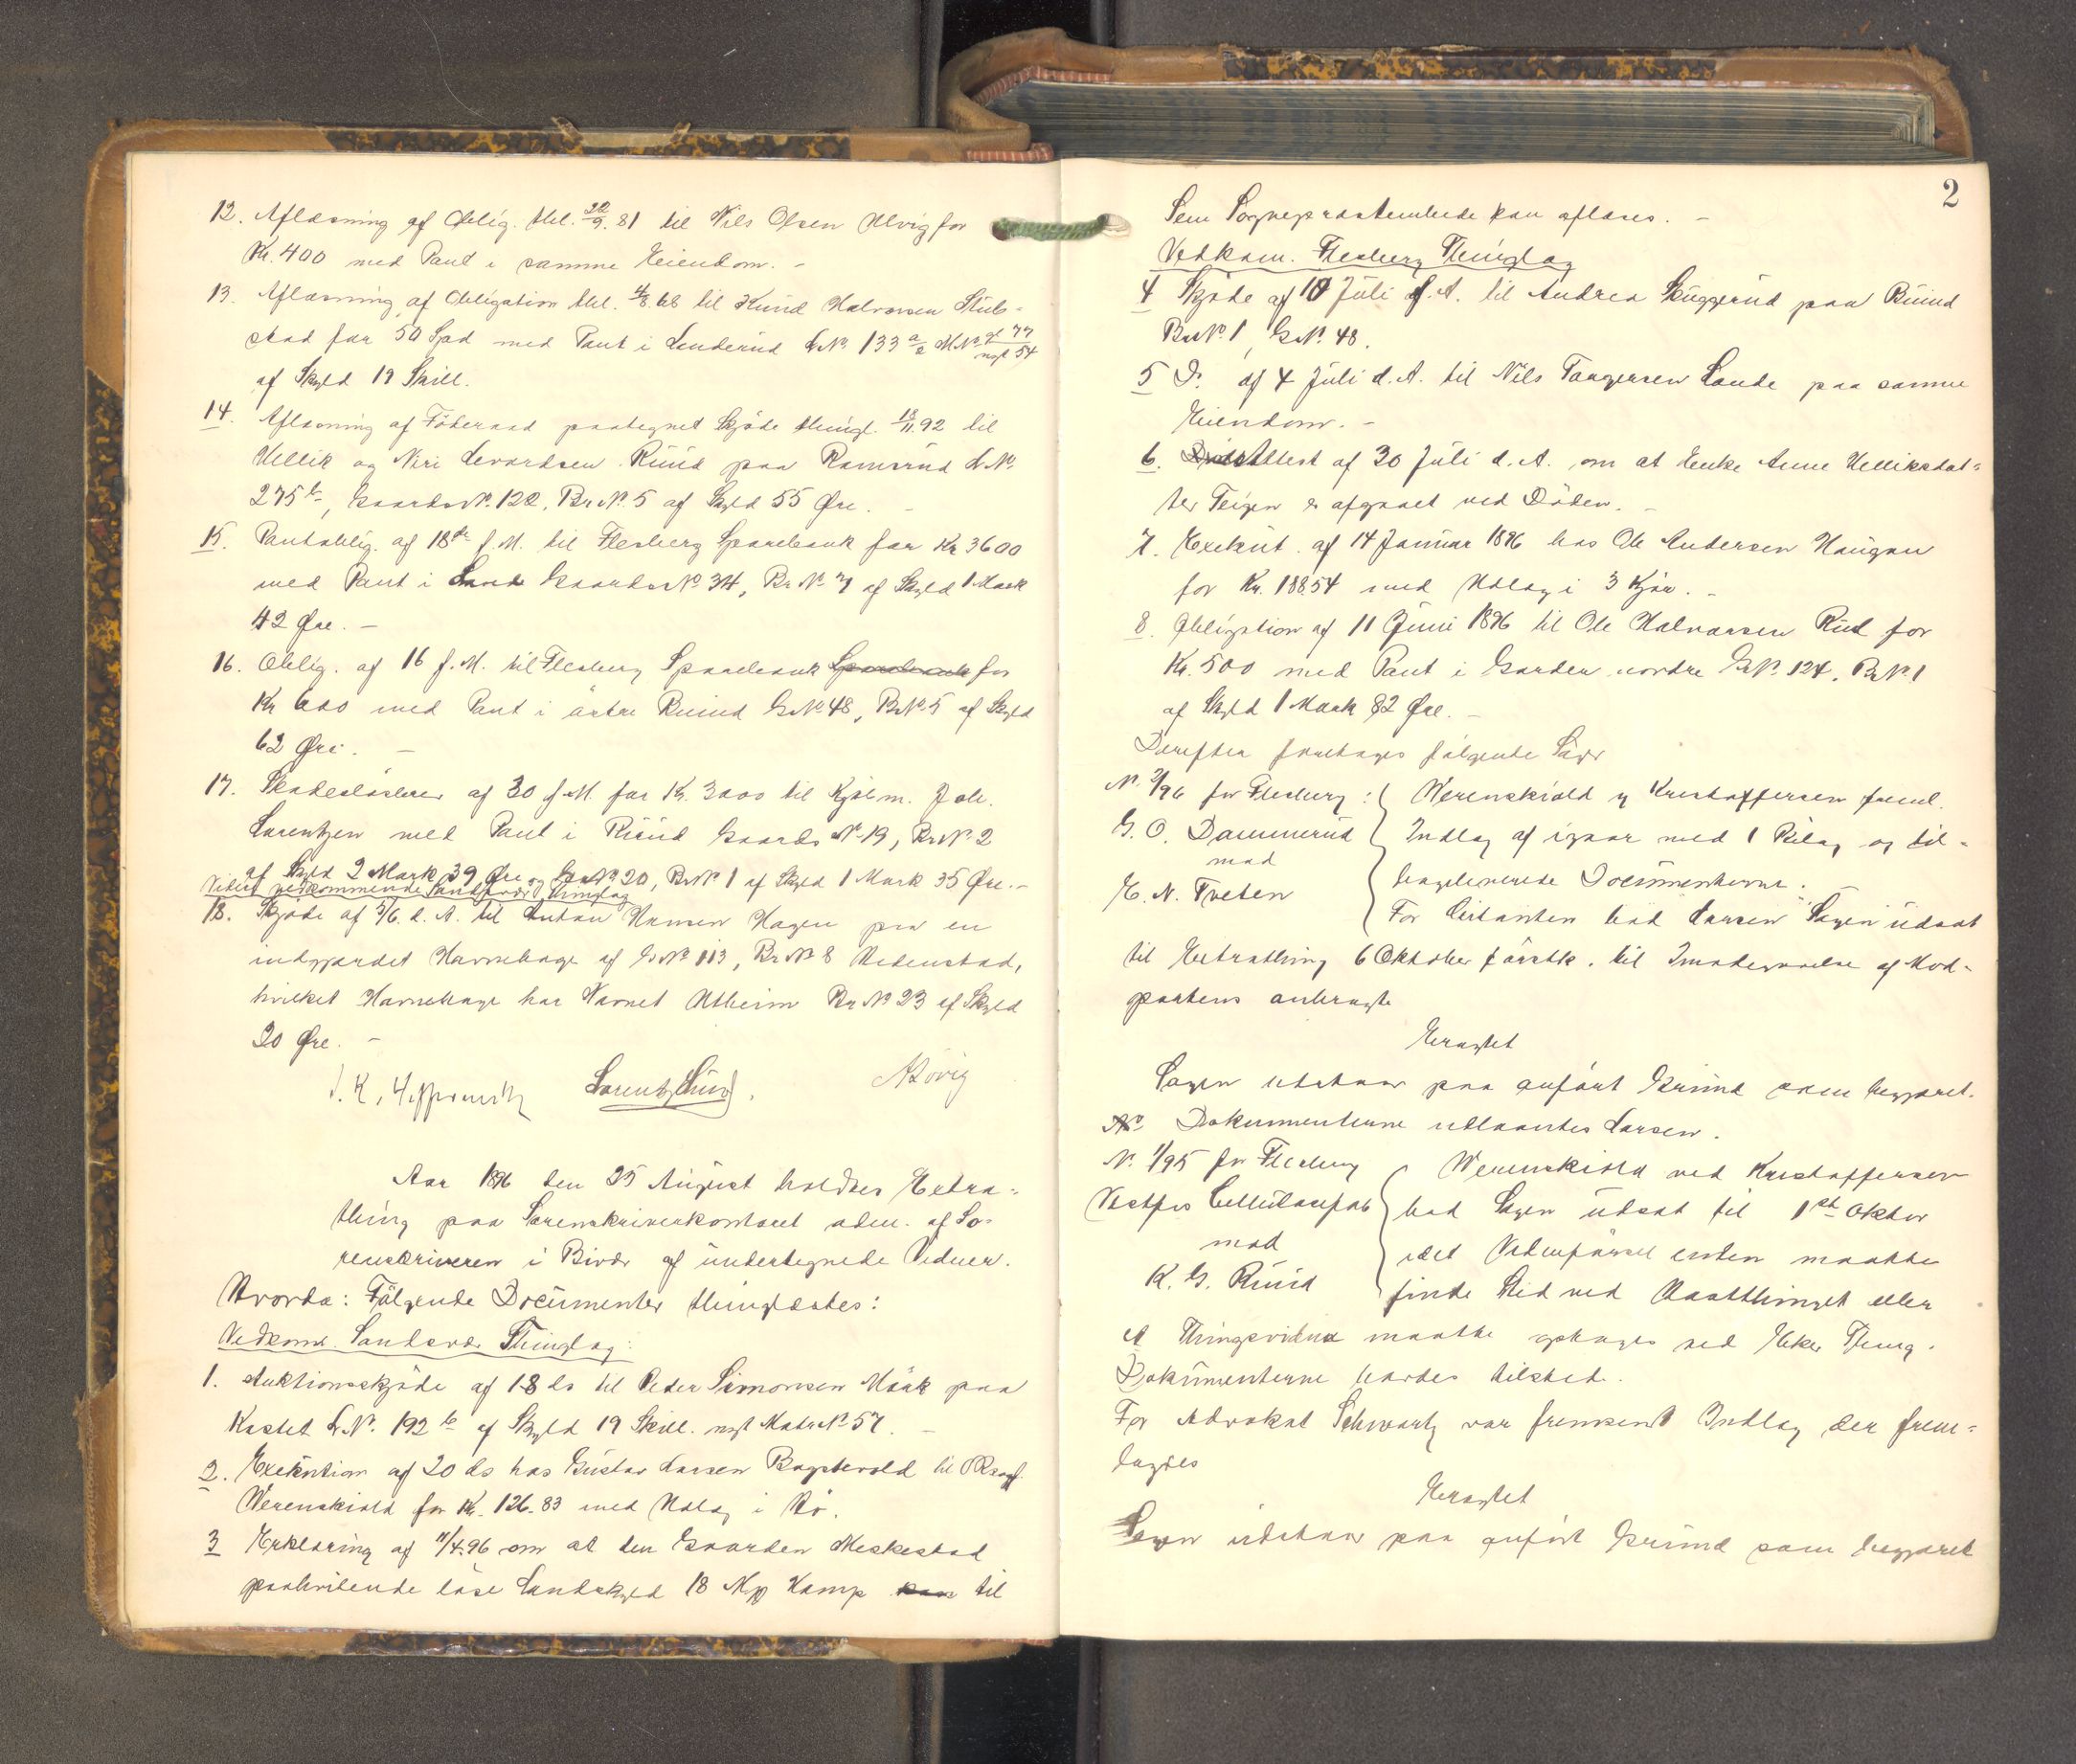 12. Aflæsning af Oblig. thl. 20/9. 81 til Nils Olsen Ulvig for
Kr. 400 med Pant i samme Eiendom. -
13. Aflæsning af Obligation thl. 4/8 68 til Knud Halvorsen Stub-
stad for 50 Spd med Pant i Lunderud LNo 133 a/2 MNo gl 77 nyt 54
af Skyld 19 Skill.
14. Aflæsning af Föderaad paategnet Skjöde thingl. 18/11. 92 til
Hellik og Niri Levordsen Ruud paa Ramsrud LNo.
275 b, Gaards No. 122, BrNo. 5 af Skyld 55 Øre. -
15. Pantoblig. af 18de f. M. til Flesberg Sparebank for Kr 3600
med Pant i Lande Gaards No 34, BrNo 7 af Skyld 1 Mark
42 Øre. -
16. Oblig. af 16 f. M. til Flesberg Sparebank Sparebank for
Kr 600 med Pant i östre Ruud GNo 48, BNo. 5 af Skyld
62 Øre. -
17. Skadeslösbrev af 30 f. M. for Kr. 3000 til Kjöbm. Joh.
Lorentzen med Pant i Ruud Gaards No 19, BrNo 2
af Skyld 2 Mark 39 Øre og GNo 20, BrNo 1 af Skyld 1 Mark 35 Øre. -
Videre vedkommende Sandsværd Thinglag
18. Skjöde af 5/6. d. A. til Anton Hansen Hagen paa en
indgjærdet Havnehage af GNo 113, BrNo 8 Hedenstad,
hvilket Havnehage har Navnet Utheim BrNo 23 af Skyld
20 Øre. -
Aar 1896 den 25 August holdtes Extra-
thing paa Sorenskriverkontoret adm. af So-
renskriveren i Bivær af undertegnede Vidner.
Hvorda: Fölgende Documenter thinglæstes:
Vedkom. Sandsvær Thinglag:
1. Auktionsskjöde af 18 ds til Peder Simonsen Mörk paa
Kastet LNo. 192 b af Skyld 19 Skill. nyt MatrNo 57. -
2. Exekution af 20 ds hos Gustav Larsen Bagstevold til ORsagf.
Werenskiold for Kr. 126.83 med Udlæg i Hö.
3 Erklæring af 11/4.96 om at den Gaarden Meskestad
paahvilende löse Landskyld 18 Mkr Kamp kan til
2
Sem Sognepræstembede kan aflæses. -
Vedkom. Flesberg Thinglag
4 Skjöde af 10 Juli d. A. til Andrea Skuggerud paa Ruud
BrNo. 1, GNo. 48.
5 Do. af 4 Juli d. A. til Nils Torgersen Lande paa samme
Eiendom. -
6. Attest af 30 Juli d. A. om at Enke Anne Helliksdat-
ter Teigen er afgaaet ved Döden. -
7. Exekut. af 14 Januar 1896 hos Ole Andersen Haugan
for Kr. 188.54 med Udlæg i 3 Kjör. -
8. Obligation af 11 Juni 1896 til Ole Halvorsen Rud for
Kr. 500 med Pant i Garder nordre GNo. 124, BrNo. 1
af Skyld 1 Mark 82 Øre. -
Derefter foretoges fölgende Sager
No. 2/96 for Flesberg: Werenskiold og Kristoffersen freml.
G. O. Dammerud Indlæg af igaar med 1 Bilag og til-
mod bageleverede Documenterne.
E. N. Tveten For Citanten bad Larsen Sagen udsat
til Extrathing 6 Oktober förstk. til Imödegaaelse af Mod-
partens anbragte
Eragtet
Sagen udstaar paa anfört Grund som begjæret.
No Dokumenterne udlaantes Larsen.
No. 1/95 for Flesberg Werenskiold ved Kristoffersen
Vestfos Cellulosefab bad Sagen udsat til 1st Oktbr
mod idet Vidneförsel enten maatte
K. G. Ruud finde Sted ved Høstthinget eller
et Thingsvidne maatte optages ved Eker Thing.
Dokumenterne havdes tilstede.
For Advokat Schwartz var fremsendt Indlæg der frem-
lagdes
Eragtet
Sagen udstaar paa anfört Grund som begjæret